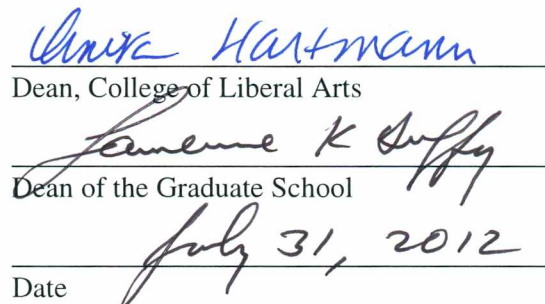 Anita Hartmann
Dean, College of Liberal Arts
Lawrence K Duffy
Dean of the Graduate School
July 31, 2012
Date